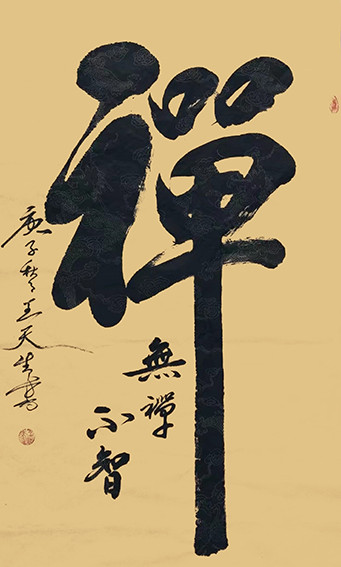 禪
無禪
不智
庚子秋王天生書